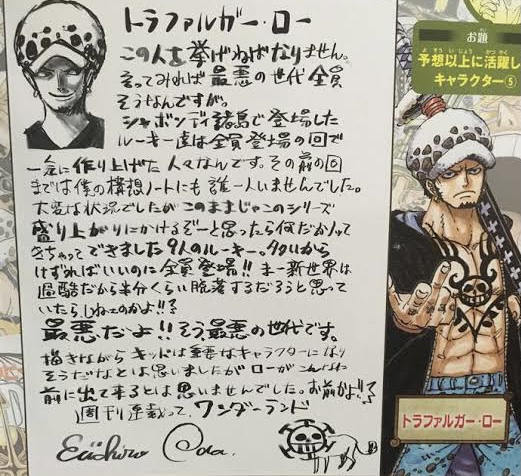 トラファルガー・ロー
この人を挙げねばなりません。
そってみれば最悪の世代全員
そうなんですが。
シャボンディ諸島で登場した
ルーキー達は全員登場の回で
一気に作り上げた人々なんです。その前の回
までは僕の構想ノートにも誰一人いませんでした。
大変な状況でしたがこのままじゃこのシリーズ
盛り上がりにかけるぞーと思ったら何だか入って
きちゃってできました9人のルーキー。
はずればいいのに全員登場!!まー新世界は
過酷だから半分くらい脱落するだろうと思って
いたらしねェのかよ!!?
最悪だよ!!そう、最悪の世代です。
描きながらキッドは重要なキャラクターになり
そうだなとは思いましたがローがこんなに
前に出て来るとは思いませんでした。お前かよ!!?
週刊連載って、ワンダーランド
Eiichiro Oda.
お題
予想以上に活躍し
キャラクター⑤
トラファルガー・ロー